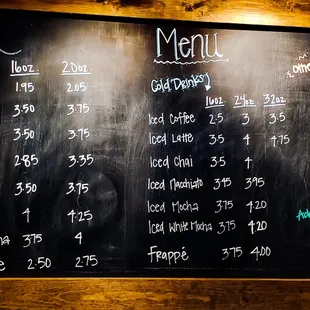 Menu
Cold Drinks
16oz. 20oz.
1.95 2.05
3.50 3.75
3.50 3.75
2.85 3.35
3.50 3.75
4 4.25
3.75 4
2.50 2.75
16oz 24oz 32oz
Iced Coffee 2.5 3 3.5
Iced Latte 3.5 4 4.75
Iced Chai 3.5 4
Iced Macchiato 3.45 3.95
Iced Mocha 3.75 4.20
Iced White Mocha 3.75 4.20
Frappé 3.75 4.00